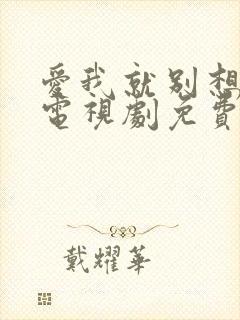 愛我就別想
電視劇免費
戴耀華